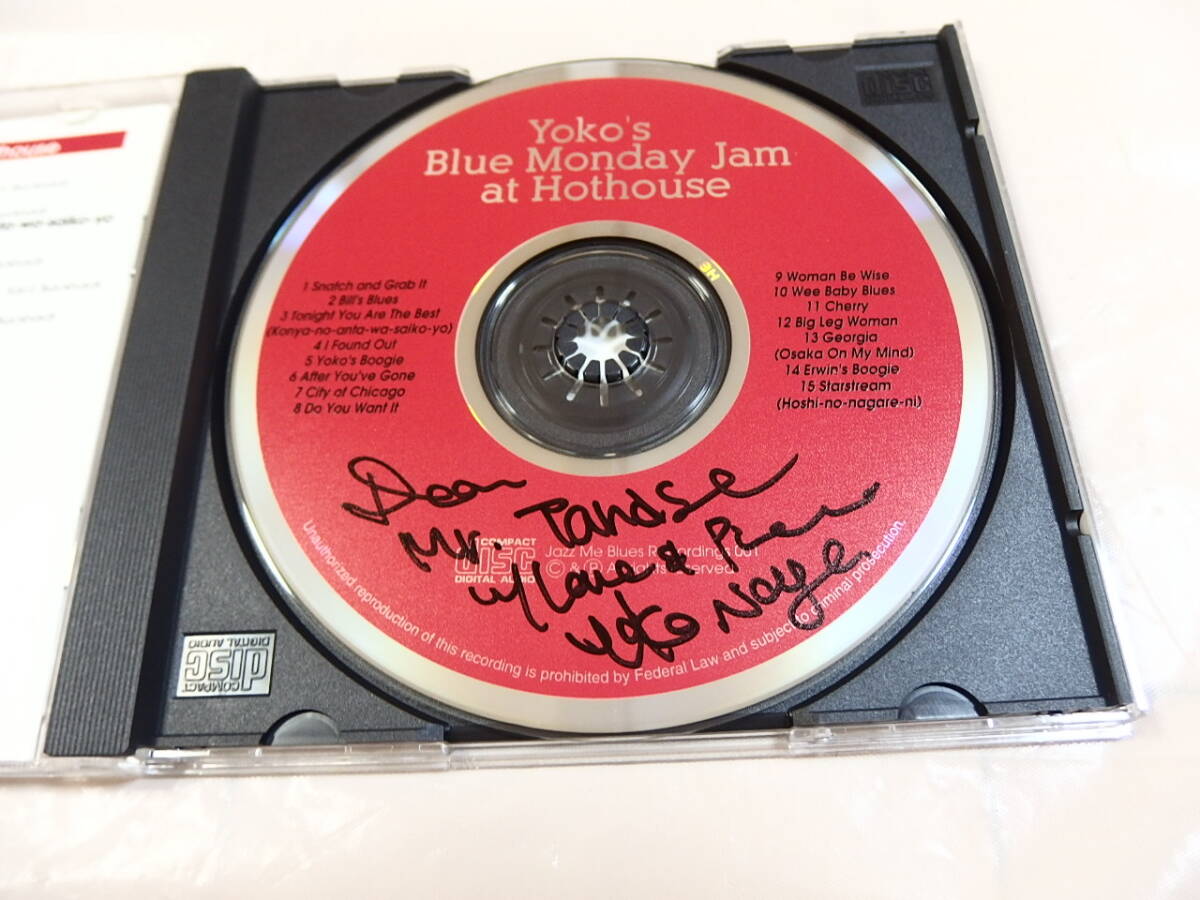 Yoko's
Blue Monday Jam
at Hothouse
1 Snatch and Grab It
2 Bill's Blues
3 Tonight You Are The Best
(Konya-no-anta-wa-saiko-yo)
4 I Found Out
5 Yoko's Boogie
6 After You've Gone
7 City of Chicago
8 Do You Want It
9 Woman Be Wise
10 Wee Baby Blues
11 Cherry
12 Big Leg Woman
13 Georgia
(Osaka On My Mind)
14 Erwin's Boogie
15 Starstream
(Hoshi-no-nagare-ni)
Dear
Mr. Tanose
w/ Love &
Yoko Noge
COMPACT
disc
DIGITAL AUDIO
Jazz Me Blues Recordings 001
© & ℗ All Rights Reserved
Unauthorized reproduction of this recording is prohibited by Federal Law and subject to criminal prosecution.
COMPACT
disc
DIGITAL AUDIO
disc
house
-wa-saiko-yo